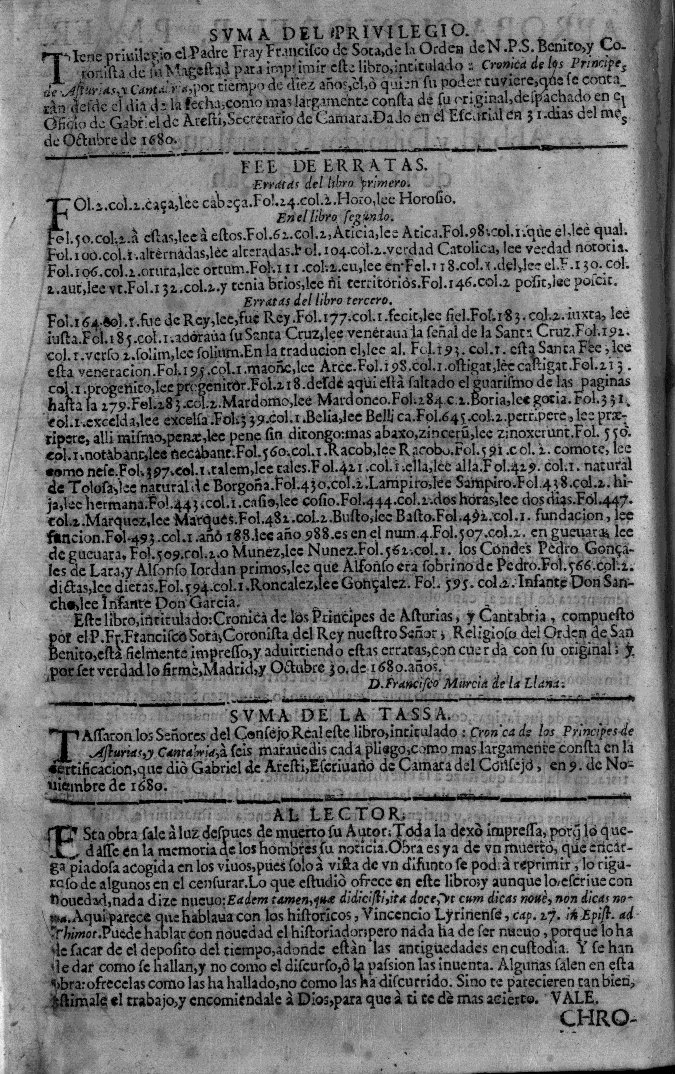 SVMA DEL PRIVILEGIO.
TIene privilegio el Padre Fray Francisco de Sota, de la Orden de N.P.S. Benito, y Co-
ronista de su Magestad para imprimir este libro, intitulado: Cronica de los Principe,
de Asturias, y Cantabria, por tiempo de diez años, el, ò quien su poder tuviere, que se conta
ràn desde el dia de la fecha, como mas largamente consta de su original, despachado en el
Oficio de Gabriel de Aresti, Secretario de Camara. Dado en el Escurial en 31. dias del mes
de Octubre de 1680.
FEE DE ERRATAS.
Erratas del libro primero.
FOl.2.col.2.caça, lee cabeça. Fol.24.col.2. Horo, lee Horosio.
En el libro segundo.
Fol.50.col.2.à estas, lee à estos. Fol.62.col.2, Aticia, lee Atica. Fol.98.col.1.que el.lee qual.
Fol.100.col.1.alternadas, lee alteradas. Fol.104.col.2.verdad Catolica, lee verdad notoria.
Fol.106.col.2.orura, lee ortum. Fol.111.col.2.cu, lee en. Fol.118.col.1.del, lee el. F.130. col.
2.aut, lee vt. Fol.132.col.2.y tenia brios, lee ni territorios. Fol.146.col.2 posit, lee poscit.
Erratas del libro tercero.
Fol.164.col.1.fue de Rey, lee, fue Rey. Fol.177.col.1.fecit, lee fiel. Fol.183. col.2. iuxta, lee
iusta. Fol.185.col.1.adoraua su Santa Cruz, lee veneraua la señal de la Santa Cruz. Fol.192.
col.1.verso 2.solim, lee solium. En la traducion el, lee al. Fol.193. col.1. esta Santa Fee, lee
esta veneracion. Fol.195.col.1.maonc, lee Arce. Fol.198.col.1.ostigat, lee castigat. Fol.213.
col.1.progenito, lee progenitor. Fol.218.desde aqui està saltado el guarismo de las paginas
hasta la 279. Fol.283.col.2.Mardomo, lee Mardoneo. Fol.284.c.2.Boria, lee gotia. Fol.331.
col.1.excelda, lee excelsa. Fol.339.col.1.Belia, lee Bellica. Fol.645.col.2.perripere, lee præ-
ripere, alli mismo, penæ, lee pene sin ditongo: mas abaxo, zincerũ, lee zinoxerunt. Fol. 550.
col.1.notabant, lee necabant. Fol.560.col.1.Racob, lee Racobo. Fol.591.col.2. comote, lee
como nese. Fol.397.col.1.talem, lee tales. Fol.421.col.1.ella, lee alla. Fol.429. col.1. natural
de Tolosa, lee natural de Borgoña. Fol.430.col.2.Lampiro, lee Sampiro. Fol.438.col.2. hi-
ja, lee hermana. Fol.443.col.1.casio, lee cosio. Fol.444.col.2.dos horas, lee dos dias. Fol.447.
col.2.Marquez, lee Marques. Fol.482.col.2.Busto, lee Basto. Fol.492.col.1. fundacion, lee
sancion. Fol.493.col.1.año 188.lee año 988.es en el num.4. Fol.507.col.2. en gueuara, lee
de gueuara, Fol.509.col.2.o Munez, lee Nunez. Fol.562.col.1. los Condes Pedro Gonça-
les de Lara, y Alfonso Iordan primos, lee que Alfonso era sobrino de Pedro. Fol.566.col.2.
dictas, lee dietas. Fol.594.col.1.Roncalez, lee Gonçalez. Fol. 595. col.2. Infante Don San-
cho, lee Infante Don Garcia.
Este libro, intitulado: Cronica de los Principes de Asturias, y Cantabria, compuesto
por el P. Fr. Francisco Sota, Coronista del Rey nuestro Señor, Religioso del Orden de San
Benito, està fielmente impresso, y aduirtiendo estas erratas, concuerda con su original: y
por ser verdad lo firmè, Madrid, y Octubre 30. de 1680. años.
D. Francisco Murcia de la Llana.
SVMA DE LA TASSA.
TAssaron los Señores del Consejo Real este libro, intitulado: Cronica de los Principes de
Asturias, y Cantabria, à seis marauedis cada pliego, como mas largamente consta en la
certificacion, que diò Gabriel de Aresti, Escriuano de Camara del Consejo, en 9. de No-
uiembre de 1680.
AL LECTOR.
ESta obra sale à luz despues de muerto su Autor: Toda la dexò impressa, porq̃ lo que-
dàsse en la memoria de los hombres su noticia. Obra es ya de vn muerto, que encar-
ga piadosa acogida en los viuos, pues solo à vista de vn difunto se podrà reprimir, lo rigu-
roso de algunos en el censurar. Lo que estudiò ofrece en este libro: y aunque lo escriue con
nouedad, nada dize nueuo: Eadem tamen, quæ didicisti, ita doce, vt cum dicas nouè, non dicas no-
ua. Aqui parece que hablava con los historicos, Vincencio Lyrinense, cap. 27. in Epist. ad
Thimot. Puede hablar con nouedad el historiador: pero nada ha de ser nueuo, porque lo ha
de sacar del deposito del tiempo, adonde estàn las antiguedades en custodia. Y se han
de dar como se hallan, y no como el discurso, ò la passion las inuenta. Algunas salen en esta
obra: ofrecelas como las ha hallado, no como las ha discurrido. Sino te parecieren tan bien,
estimale el trabajo, y encomiendale à Dios, para que à ti te dè mas acierto. VALE.
CHRO-